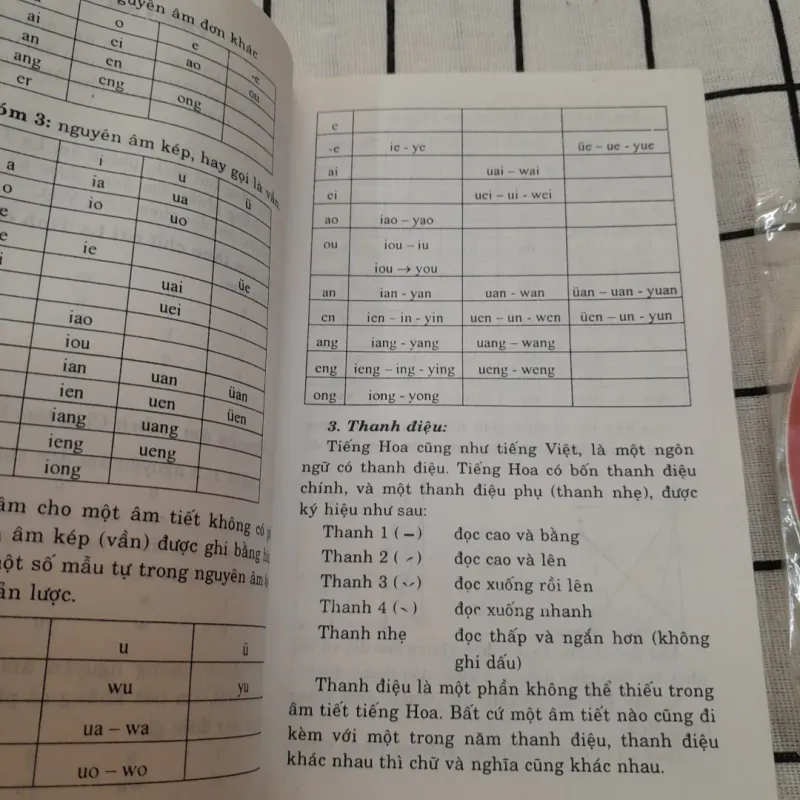 nguyên âm đơn khác
o e -e
ai ei ao ou
an en ong
ang eng
er
3: nguyên âm kép, hay gọi là vần
i u ü
a ia ua
o io uo
e
e ie üe
i uai
uei
iao
iou
ian uan üan
ien uen üen
iang uang
ieng ueng
iong
âm cho một âm tiết không có
âm kép (vần) được ghi bằng
số mẫu tự trong nguyên âm
lược.
u ü
wu yu
ua – wa
uo – wo
e
-e ie - ye üe – ue - yue
ai uai – wai
ei uei – ui - wei
ao iao – yao
ou iou – iu
iou → you
an ian - yan uan - wan üan – uan - yuan
en ien – in - yin uen – un - wen üen – un - yun
ang iang - yang uang – wang
eng ieng – ing - ying ueng - weng
ong iong - yong
3. Thanh điệu:
Tiếng Hoa cũng như tiếng Việt, là một ngôn
ngữ có thanh điệu. Tiếng Hoa có bốn thanh điệu
chính, và một thanh điệu phụ (thanh nhẹ), được
ký hiệu như sau:
Thanh 1 (ˉ) đọc cao và bằng
Thanh 2 (ˊ) đọc cao và lên
Thanh 3 (ˇ) đọc xuống rồi lên
Thanh 4 (ˋ) đọc xuống nhanh
Thanh nhẹ đọc thấp và ngắn hơn (không
ghi dấu)
Thanh điệu là một phần không thể thiếu trong
âm tiết tiếng Hoa. Bất cứ một âm tiết nào cũng đi
kèm với một trong năm thanh điệu, thanh điệu
khác nhau thì chữ và nghĩa cũng khác nhau.